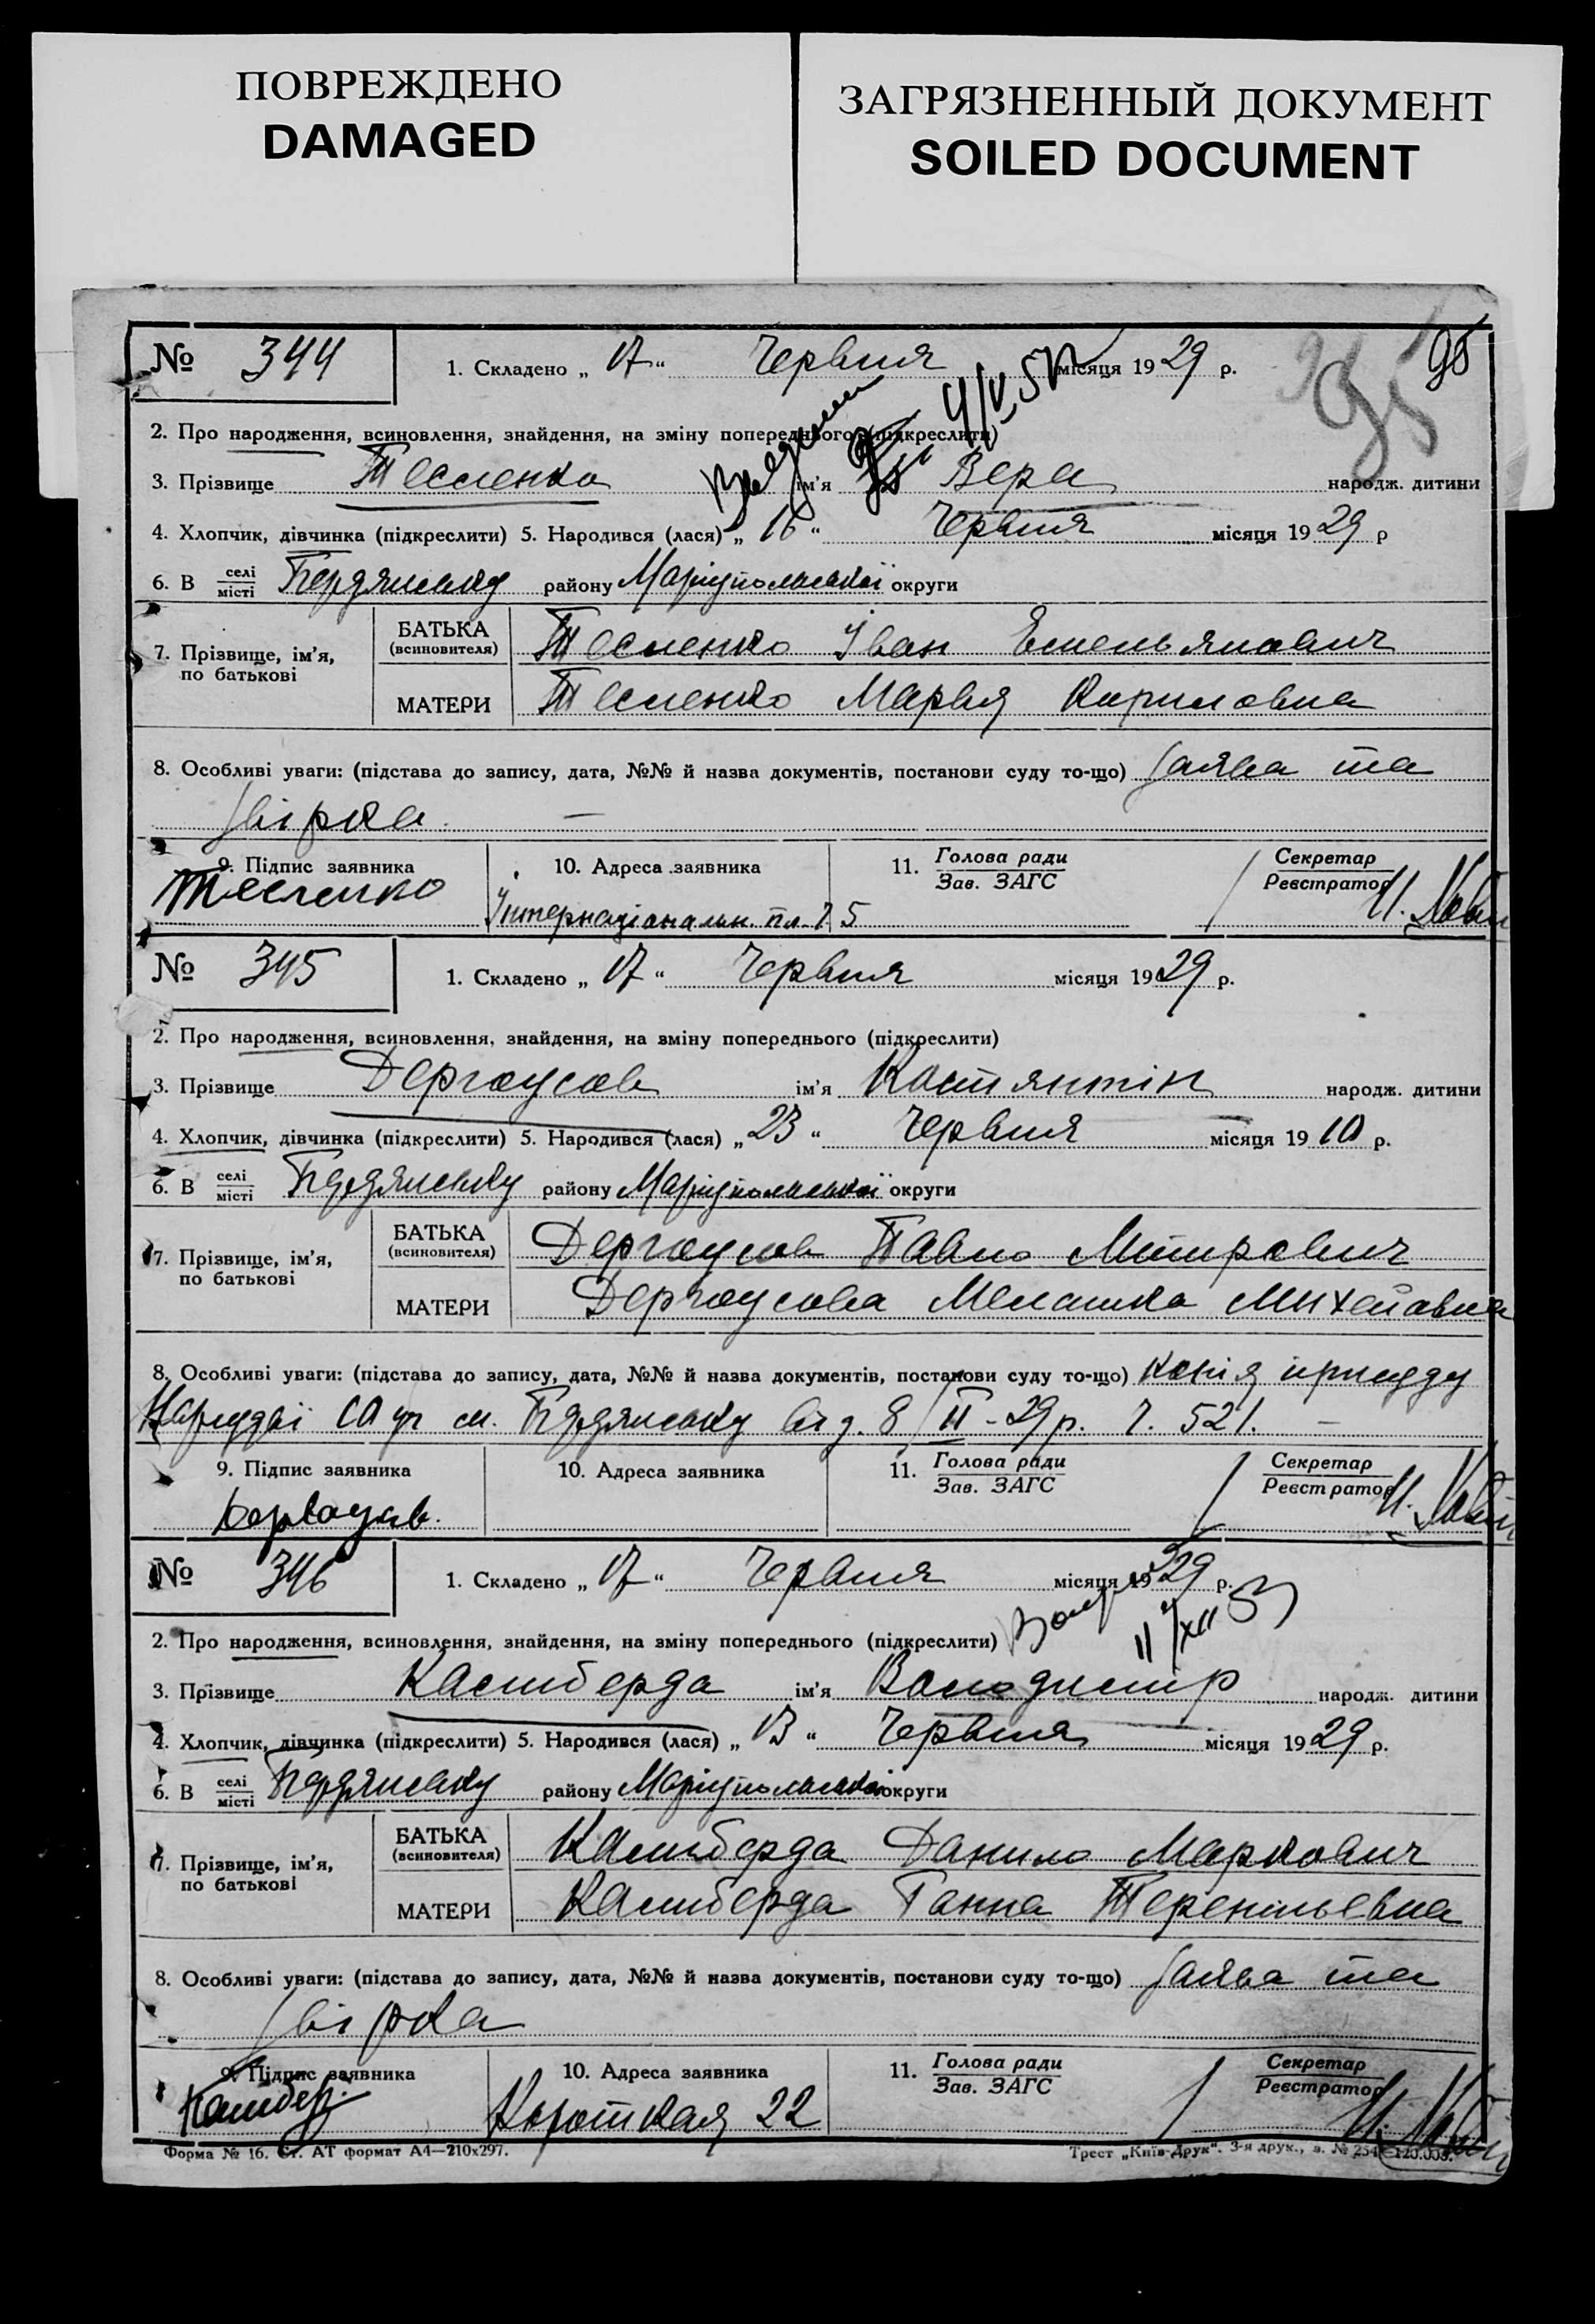 ПОВРЕЖДЕНО
DAMAGED
ЗАГРЯЗНЕННЫЙ ДОКУМЕНТ
SOILED DOCUMENT
95
95
№ 344
1. Складено „ 17 “ Червня місяця 1929 р.
4/V 57
2. Про народження, всиновлення, знайдення, на зміну попереднього (підкреслити)
3. Прізвище Тесленко ім'я Вера народж. дитини
4. Хлопчик, дівчинка (підкреслити) 5. Народився (лася) „ 16 “ Червня місяця 1929 р
6. В селі/місті Бердянську району Маріупольської округи
7. Прізвище, ім'я, по батькові
БАТЬКА (всиновителя) Тесленко Іван Емельянович
МАТЕРИ Тесленко Марья Кириловна
8. Особливі уваги: (підстава до запису, дата, №№ й назва документів, постанови суду то-що) Заява та
звірка. —
9. Підпис заявника 10. Адреса заявника 11. Голова ради/Зав. ЗАГС Секретар/Реєстратор
Тесленко Інтернаціональн. пл. 75
№ 345
1. Складено „ 17 “ Червня місяця 1929 р.
2. Про народження, всиновлення, знайдення, на зміну попереднього (підкреслити)
3. Прізвище Дергоусов ім'я Костянтін народж. дитини
4. Хлопчик, дівчинка (підкреслити) 5. Народився (лася) „ 23 “ Червня місяця 1910 р.
6. В селі/місті Бердянську району Маріупольської округи
7. Прізвище, ім'я, по батькові
БАТЬКА (всиновителя) Дергоусов Павло Митрович
МАТЕРИ Дергоусова Мелашка Михейовна
8. Особливі уваги: (підстава до запису, дата, №№ й назва документів, постанови суду то-що) Копія присуду
Нарсудді м. Бердянську від. 8/II-29 р. ч. 521. —
9. Підпис заявника 10. Адреса заявника 11. Голова ради/Зав. ЗАГС Секретар/Реєстратор
№ 346
1. Складено „ 17 “ Червня місяця 1929 р.
11/XII 53
2. Про народження, всиновлення, знайдення, на зміну попереднього (підкреслити)
3. Прізвище Кашберда ім'я Володимир народж. дитини
4. Хлопчик, дівчинка (підкреслити) 5. Народився (лася) „ 13 “ Червня місяця 1929 р.
6. В селі/місті Бердянську району Маріупольської округи
7. Прізвище, ім'я, по батькові
БАТЬКА (всиновителя) Кашберда Данило Маркович
МАТЕРИ Кашберда Ганна Терентьевна
8. Особливі уваги: (підстава до запису, дата, №№ й назва документів, постанови суду то-що) Заява та
звірка
9. Підпис заявника 10. Адреса заявника 11. Голова ради/Зав. ЗАГС Секретар/Реєстратор
Кашбер. Короткая 22
Форма № 16. Ст. АТ формат А4—210х297.
Трест „Київ-Друк“. 3-я друк., з. № 254—120.000.